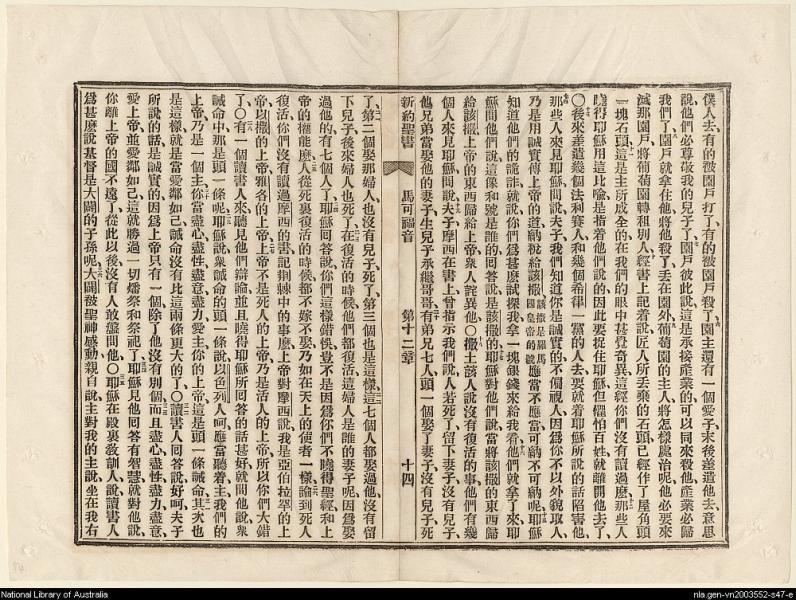 僕人去有的被園戶打了有的被園戶殺了園主還有一個愛子末後差遣他去意思
說他們必尊敬我的兒子了園戶彼此說這是承接產業的可以同來殺他產業必歸
我們了園戶就拿住他將他殺了丟在園外葡萄園的主人將怎樣處治呢他必要來
滅那園戶將葡萄園轉租別人經書上記着說匠人所丟棄的石頭已經作了屋角頭
一塊石頭這是主所成全的在我們的眼中甚覺奇異這經你們沒有讀過麼那些人
曉得耶穌用這比喻是指着他們說的因此要捉住耶穌但懼怕百姓就離開他去了
○後來差遣幾個法利賽人和幾個希律一黨的人去要就着耶穌所說的話陷害他
那些人來見耶穌問說夫子我們知道你是誠實的不偏視人因爲你不以外貌取人
乃是用誠實傳上帝的道納稅給該撒該撒是羅馬國皇帝的號應當不應當可納不可納呢耶穌
知道他們的詭詐就說你們爲甚麼試探我拿一塊銀錢來給我看他們就拿了來耶
穌問他們說這像和號是誰的回答說是該撒的耶穌對他們說當將該撒的東西歸
給該撒上帝的東西歸給上帝衆人詫異他○撒土該人說沒有復活的事他們有幾
個人來見耶穌問說夫子摩西在書上曾指示我們說人若死了留下妻子沒有兒子
他兄弟當娶他的妻子生兒子承繼哥哥有弟兄七人頭一個娶了妻子沒有兒子死
新約聖書 馬可福音 第十二章 十四
了第二個娶那婦人也沒有兒子死了第三個也是這樣這七個人都娶過他沒有留
下兒子後來婦人也死了在復活的時候他們都復活這婦人是誰的妻子呢因爲娶
過他的有七個人了耶穌回答說你們這樣錯悞豈不是因爲你們不曉得聖經和上
帝的權能麼人從死裏復活的時候都不嫁不娶乃如在天上的使者一樣論到死人
復活你們沒有讀過摩西的書記荆棘中的事麼上帝對摩西說我是亞伯拉罕的上
帝以撒的上帝雅各的上帝上帝不是死人的上帝乃是活人的上帝所以你們大錯
了○有一個讀書人來聽見他們辯論並且曉得耶穌所回答的話甚好就問他說衆
誡命中那是頭一條呢耶穌說衆誡命的頭一條說以色列人呵應當聽着主我們的
上帝乃是一個主你當盡心盡性盡意盡力愛主你的上帝這是頭一條誡命其次也
是這樣就是當愛鄰如己誡命沒有比這兩條更大的了○讀書人回答說好呵夫子
所說的話是誠實的因爲上帝只有一個除了他沒有別個而且盡心盡性盡力盡意
愛上帝並愛鄰如己這就勝過一切燔祭和祭祀了耶穌見他回答有智慧就對他說
你離上帝的國不遠了從此以後沒有人敢盤問他○耶穌在殿裏敎訓人說讀書人
爲甚麼說基督是大闢的子孫呢大闢被聖神感動親自說主對我的主說坐在我右
National Library of Australia
nla.gen-vn2003552-s47-e